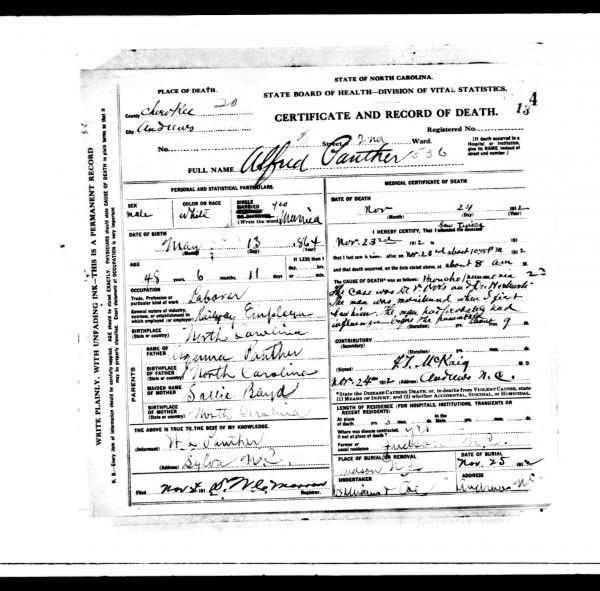 STATE OF NORTH CAROLINA.
STATE BOARD OF HEALTH—DIVISION OF VITAL STATISTICS.
CERTIFICATE AND RECORD OF DEATH.
4
13
PLACE OF DEATH.
County Cherokee 20
City Andrews
Registered No.
No. Street 2nd Ward.
[If death occurred in a Hospital or Institution, give its NAME instead of street and number.]
FULL NAME Alfred Panther 536
PERSONAL AND STATISTICAL PARTICULARS.
SEX male
COLOR OR RACE White
SINGLE MARRIED yes
(Write the word) Married
DATE OF BIRTH
May 13 1864
(Month) (Day) (Year)
AGE
48 years 6 months 11 days
If LESS than 1 day, hrs. or min.
OCCUPATION
Trade, Profession or particular kind of work Laborer
General nature of industry, business, or establishment in which employed (or employer) Railway Employee
BIRTHPLACE (State or country) North Carolina
PARENTS
NAME OF FATHER Panther
BIRTHPLACE OF FATHER (State or country) North Carolina
MAIDEN NAME OF MOTHER Sallie
BIRTHPLACE OF MOTHER (State or country) North Carolina
THE ABOVE IS TRUE TO THE BEST OF MY KNOWLEDGE.
(Informant) Panther
(Address) Sylva N.C.
Filed Nov 191 Registrar.
MEDICAL CERTIFICATE OF DEATH
DATE OF DEATH
Nov 24 1912
(Month) (Day) (Year)
I HEREBY CERTIFY, That I attended the deceased
Saw twice
Nov. 23rd 1912 to 191
that I last saw h im alive on Nov. 23rd about 10:45 P.M 1912
and that death occurred, on the date stated above, at about 8 am
The CAUSE OF DEATH* was as follows: Broncho pneumonia 23
The case was
The man was moribund when I first
saw him. The man had probably had
influenza before the pneumonia
(Duration) yrs. mos. 9 ds.
CONTRIBUTORY (Secondary)
(Duration) yrs. mos. ds.
(Signed) McKaig M. D.
Nov. 24th 1912 (Address) Andrews N.C.
*State the DISEASE CAUSING DEATH, or, in deaths from VIOLENT CAUSES, state (1) MEANS OF INJURY; and (2) whether ACCIDENTAL, SUICIDAL, or HOMICIDAL.
LENGTH OF RESIDENCE (FOR HOSPITALS, INSTITUTIONS, TRANSIENTS OR RECENT RESIDENTS)
At place of death yrs. mos. ds. State yrs. mos. ds.
Where was disease contracted, if not at place of death?
Former or usual residence Judson N.C.
PLACE OF BURIAL OR REMOVAL Judson N.C.
DATE OF BURIAL Nov. 25 1912
UNDERTAKER
ADDRESS Andrews N.C.
WRITE PLAINLY, WITH UNFADING INK—THIS IS A PERMANENT RECORD
N. B.—Every item of information should be carefully supplied. AGE should be stated EXACTLY. PHYSICIANS should state CAUSE OF DEATH in plain terms so that it may be properly classified. Exact statement of OCCUPATION is very important